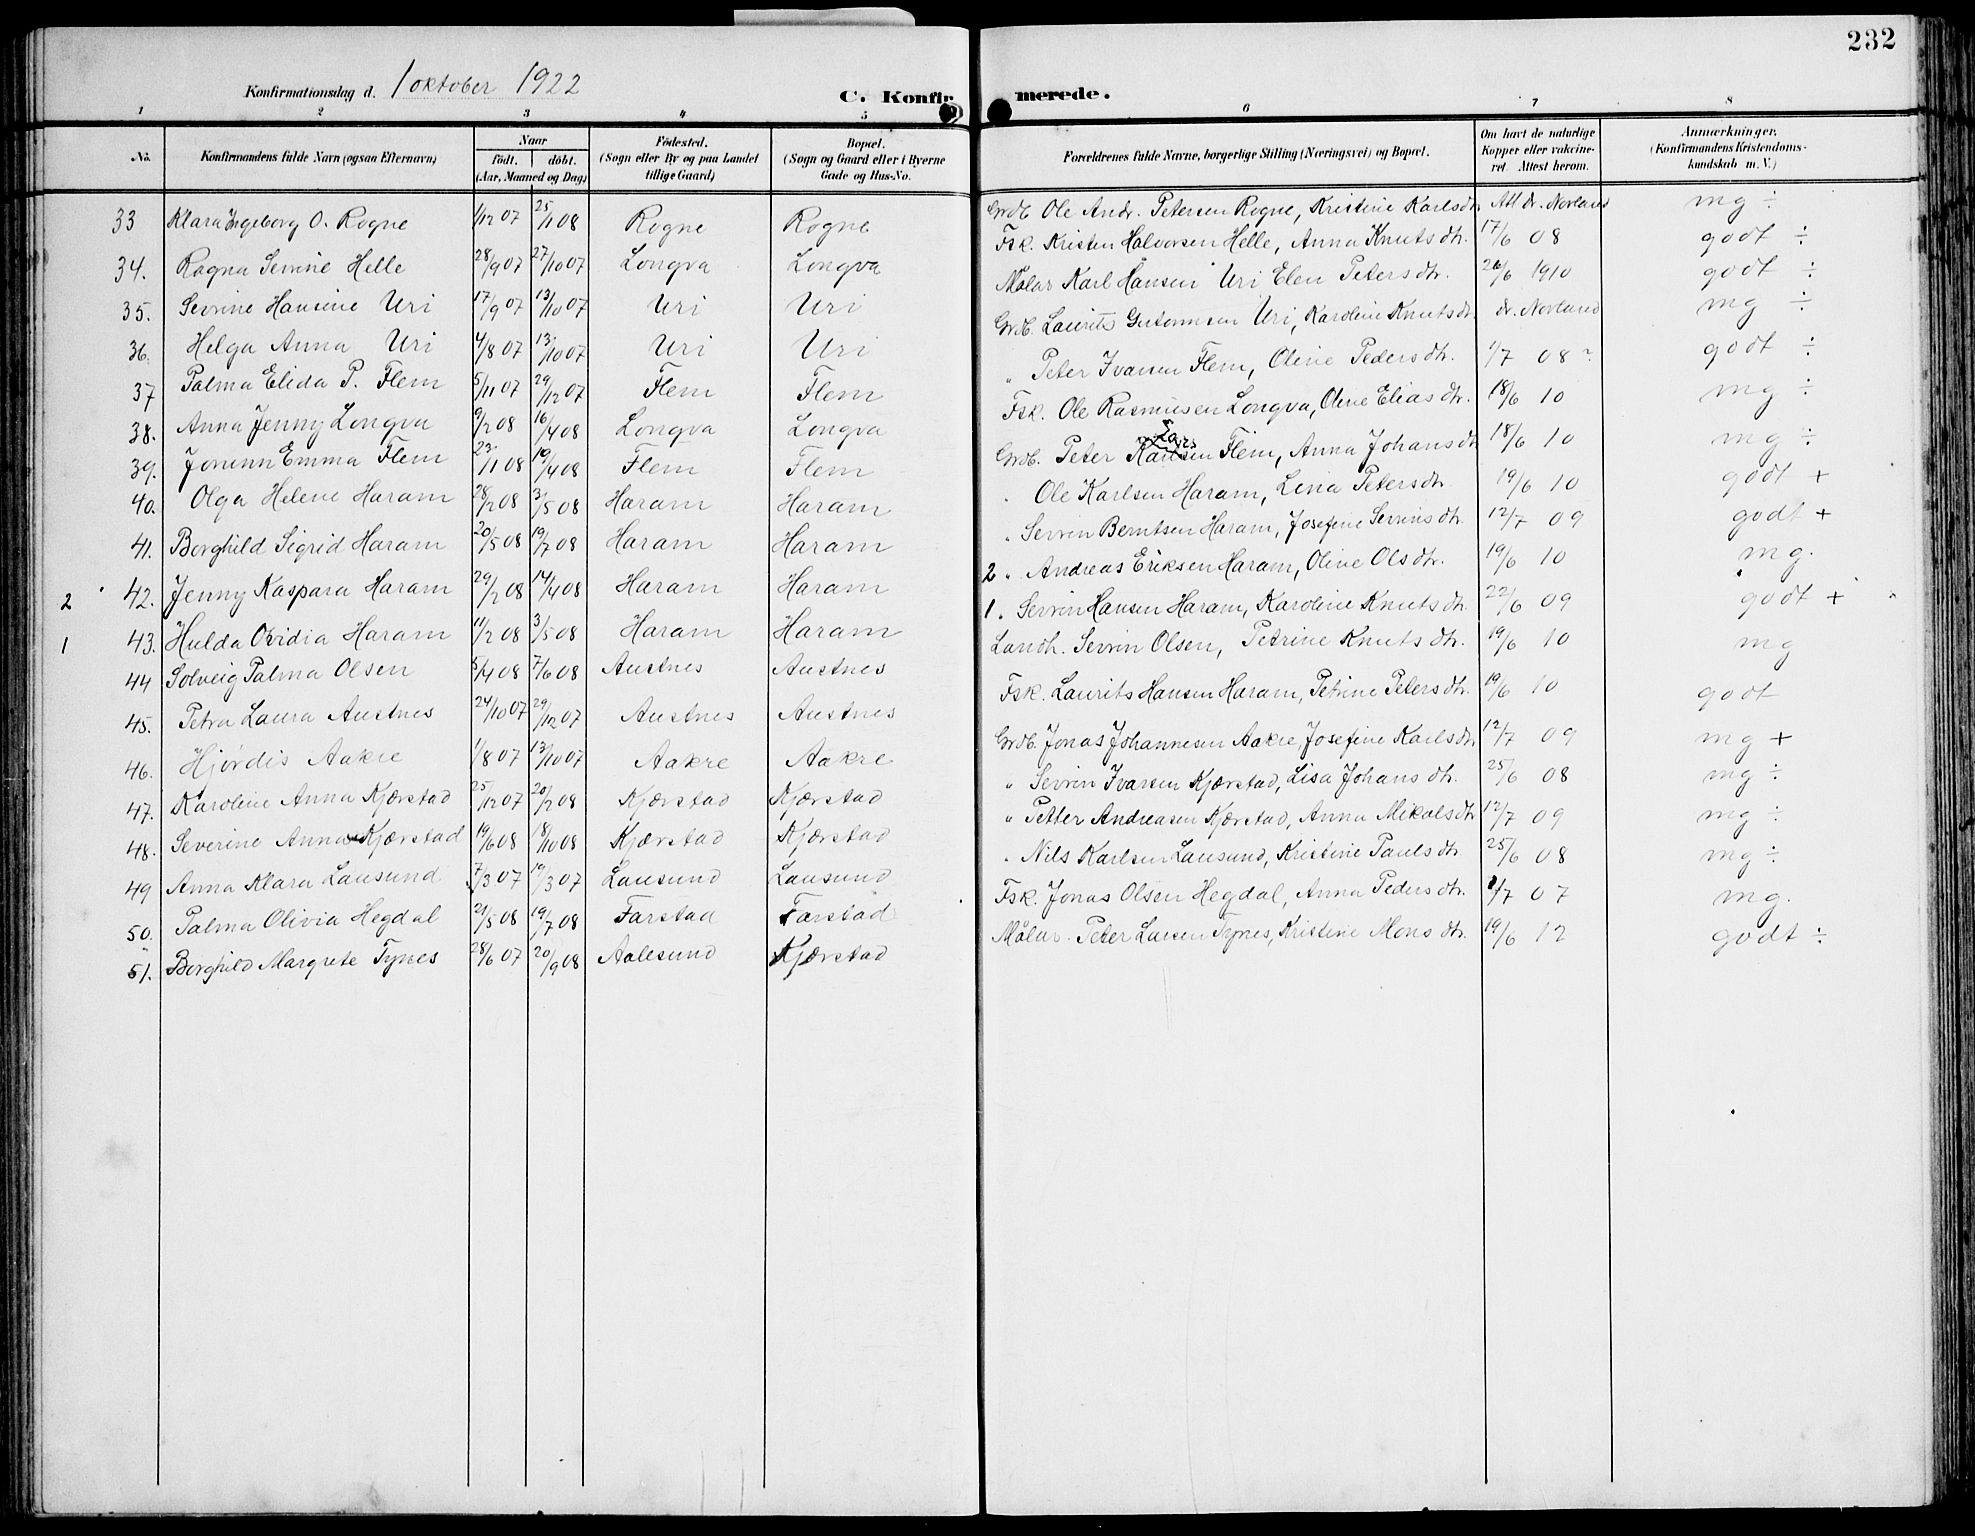 232
Konfirmationsdag d. 1 oktober 1922
C. Konfirmerede.
1 2 3 4 5 6 7 8
No. Konfirmandens fulde Navn (ogsaa Efternavn) Naar født. døbt. (Aar, Maaned og Dag) Fødested. (Sogn eller By og paa Landet tillige Gaard) Bopæl. (Sogn og Gaard eller i Byerne Gade og Hus-No. Forældrenes fulde Navne, borgerlige Stilling (Næringsvei) og Bopæl. Om havt de naturlige Kopper eller vakcineret. Attest herom. Anmærkninger. (Konfirmandens Kristendomskundskab m. V.)
33 Klara Ingeborg O. Rogne 1/12 07 25/1 08 Rogne Rogne Grdb. Ole Andr. Petersen Rogne, Kristine Karlsdtr. Att dr. Norland mg ÷
34. Ragna Semine Helle 28/9 07 27/10 07 Longva Longva Fsk. Kristen Halvorsen Helle, Anna Knutsdtr. 17/6 08 godt ÷
35. Sevrine Hansine Uri 17/9 07 13/10 07 Uri Uri Målar Karl Hansen Uri Elen Petersdtr. 26/6 1910 godt ÷
36. Helga Anna Uri 4/8 07 13/10 07 Uri Uri Grdb. Laurits Guttormsen Uri, Karoline Knutsdtr. dr. Norland mg ÷
37 Palma Elida P. Flem 5/11 07 29/12 07 Flem Flem " Peter Ivarsen Flem, Oline Pedersdtr. 1/7 08 godt ÷
38. Anna Jenny Longva 9/2 08 16/4 08 Longva Longva Fsk. Ole Rasmusen Longva, Oline Eliasdtr. 18/6 10 mg ÷
39. Jorunn Emma Flem 23/11 08 19/4 08 Flem Flem Grdb. Peter Larsen Flem, Anna Johansdtr 18/6 10 mg ÷
40. Olga Helene Haram 28/2 08 3/5 08 Haram Haram " Ole Karlsen Haram, Lina Petersdtr. 19/6 10 godt +
41. Borghild Sigrid Haram 20/5 08 19/7 08 Haram Haram " Sevrin Berntsen Haram, Josefine Sevrinsdtr. 12/7 09 godt +
2 42. Jenny Kaspara Haram 29/2 08 14/4 08 Haram Haram 2 " Andreas Eriksen Haram, Oline Olsdtr. 19/6 10 mg.
1 43. Hulda Ovidia Haram 11/2 08 3/5 08 Haram Haram 1. Sevrin Hansen Haram, Karoline Knutsdtr. 22/6 09 godt +
44 Solveig Palma Olsen 5/4 08 7/6 08 Austnes Austnes Landh. Sevrin Olsen, Petrine Knutsdtr. 19/6 10 mg
45. Petra Laura Austnes 24/10 07 29/12 07 Austnes Austnes Fsk. Laurits Hansen Haram, Petrine Petersdtr. 19/6 10 godt
46. Hjørdis Aakre 1/8 07 13/10 07 Aakre Aakre Grdb. Jonas Johannesen Aakre, Josefine Karlsdtr 12/7 09 mg +
47. Karoline Anna Kjærstad 25/12 07 20/2 08 Kjærstad Kjærstad " Sevrin Ivarsen Kjærstad, Lisa Johansdtr. 25/6 08 mg ÷
48. Severine Anna Kjærstad 19/6 08 18/10 08 Kjærstad Kjærstad " Petter Andreasen Kjærstad, Anna Mikalsdtr 12/7 09 mg ÷
49 Anna Klara Lausund 7/3 07 19/3 07 Lausund Lausund " Nils Karlsen Lausund, Kristine Paulsdtr 25/6 08 mg ÷
50. Palma Olivia Hegdal 21/5 08 19/7 08 Farstad Farstad Fsk. Jonas Olsen Hegdal, Anna Pedersdtr. 1/7 07 mg.
51. Borghild Margrete Tynes 28/6 07 20/9 08 Aalesund Kjærstad Målar. Peter Larsen Tynes, Kristine Monsdtr. 19/6 12 godt ÷